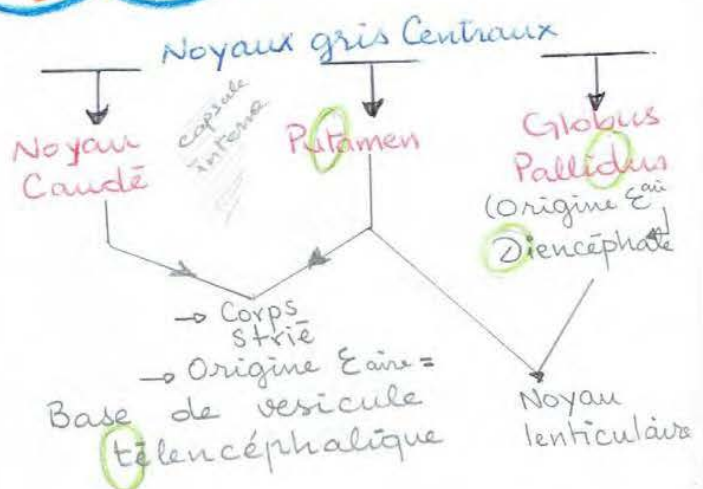 Noyaux gris Centraux
Noyau
Caudé
capsule
interne
Putamen
Globus
Pallidus
(Origine Eaire
Diencéphale
→ Corps
strié
→ Origine Eaire =
Base de vesicule
télencéphalique
Noyau
lenticulaire